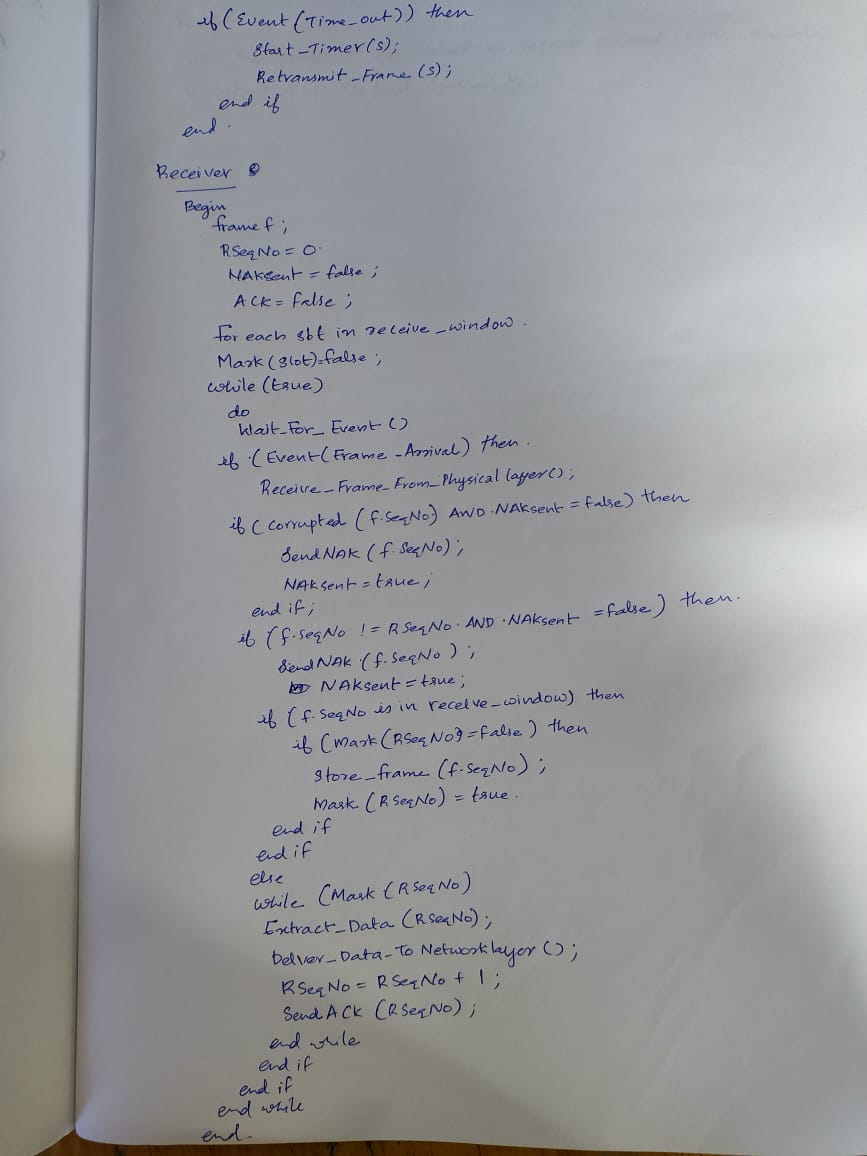 if (Event (Time_out)) then
Start_Timer(s);
Retransmit_Frame (s);
end if
end.
Receiver
Begin
frame f;
RSeqNo = 0.
NAKsent = false;
ACK = False;
for each slot in receive_window.
Mark (slot)=false;
while (true)
do
Wait_For_Event ()
if (Event (Frame_Arrival) then.
Receive_Frame_From_Physical layer();
if (corrupted (f.SeqNo) AND .NAKsent = false) then
Send NAK (f. SeqNo);
NAKsent = true;
end if;
if (f.seqNo != R SeqNo. AND .NAKsent = false) then.
Send NAK (f.SeqNo);
NAKsent = true;
if (f. SeqNo is in receive_window) then
if (Mark (RSeqNo)=False) then
Store_frame (f.SeqNo);
Mark (R SeqNo) = true.
end if
end if
else
while (Mark (R SeqNo)
Extract_Data (R SeqNo);
Deliver_Data_To Network layer ();
RSeqNo = RSeqNo + 1;
Send ACK (RSeqNo);
end while
end if
end if
end while
end.